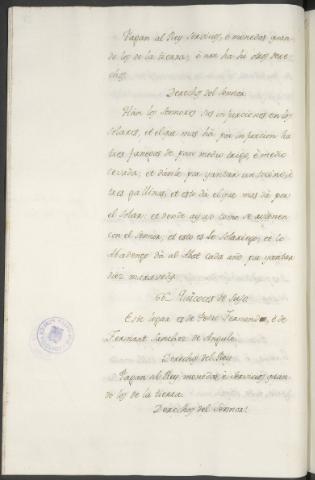 Pagan al Rey servicios, è monedas quan-
do los de la tierra; è non ha hi otros dere-
chos.
Derechos del Sennor.
Hàn los Sennores sus infurciones en los
solares, et el que mas dà por infurcion dà
tres fanegas de pan medio trigo, è medio
cevada; et danle por yantar un sueldo è
tres gallinas; et esto dà el que mas dà por
el solar; et donde ayuso como se avienen
con el Sennor; et esto es lo Solariego; et lo
Abadengo dà al Abat cada año por yantar
diez maravedis.
Quicoces de Yuso.
Este logar es de Pedro Fernandez, è de
Fernant Sanchez de Angulo.
Derechos del Rey.
Pagan al Rey monedas è servicios quan-
do los de la tierra.
Derechos del Sennor.